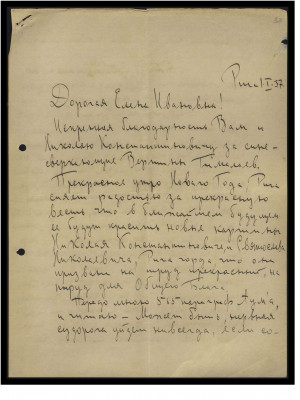 Рига 1.I.37
Дорогая Елена Ивановна!
Искренняя благодарность Вам и
Николаю Константиновичу за
сверкающие Вершины Гималаев.
Прекрасное утро Нового Года. Рига
сияет радостью за прекрасную
весть что в ближайшем будущем
ее будут красить новые картины
Николая Константиновича и Святослава
Николаевича. Рига горда что она
призвана на труд прекрасный, на
труд для Общего Блага.
Передо мною 565 параграф Аум'а,
и читаю — Может быть, нервная
судорога уйдет навсегда, если со-